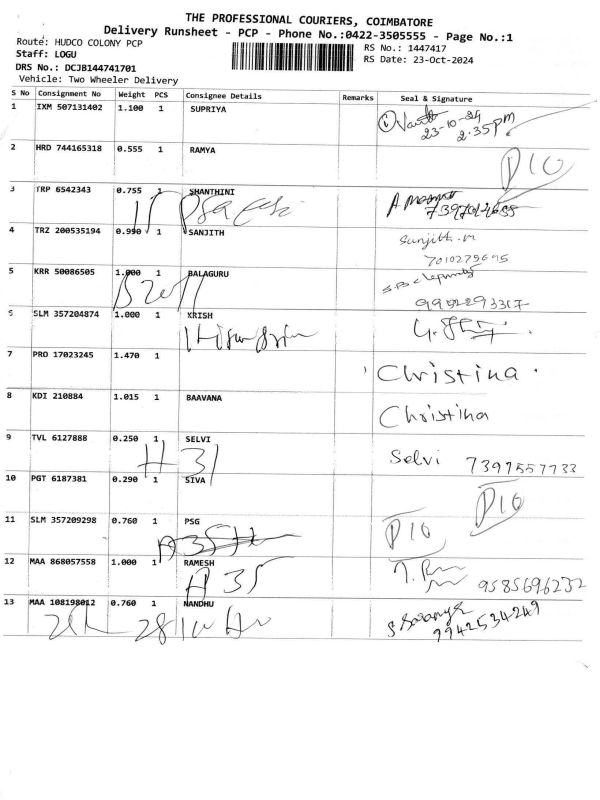 THE PROFESSIONAL COURIERS, COIMBATORE
Delivery Runsheet - PCP - Phone No.:0422-3505555 - Page No.:1
Route: HUDCO COLONY PCP
RS No.: 1447417
Staff: LOGU
RS Date: 23-Oct-2024
DRS No.: DCJB144741701
Vehicle: Two Wheeler Delivery
S No Consignment No Weight PCS Consignee Details Remarks Seal & Signature
1 IXM 507131402 1.100 1 SUPRIYA
23-10-24
2.35pm
2 HRD 744165318 0.555 1 RAMYA
D10
3 TRP 6542343 0.755 1 SHANTHINI
4 TRZ 200535194 0.990 1 SANJITH
Sunjith.M
7010279695
5 KRR 50086505 1.000 1 BALAGURU
9952293317
6 SLM 357204874 1.000 1 KRISH
7 PRO 17023245 1.470 1
Christina
8 KDI 210884 1.015 1 BAAVANA
Christina
9 TVL 6127888 0.250 1 SELVI
H 31
Selvi 7397557733
10 PGT 6187381 0.290 1 SIVA
D10
11 SLM 357209298 0.760 1 PSG
D10
12 MAA 868057558 1.000 1 RAMESH
A 35
9585696232
13 MAA 108198012 0.760 1 NANDHU
S Saranya
9942534249